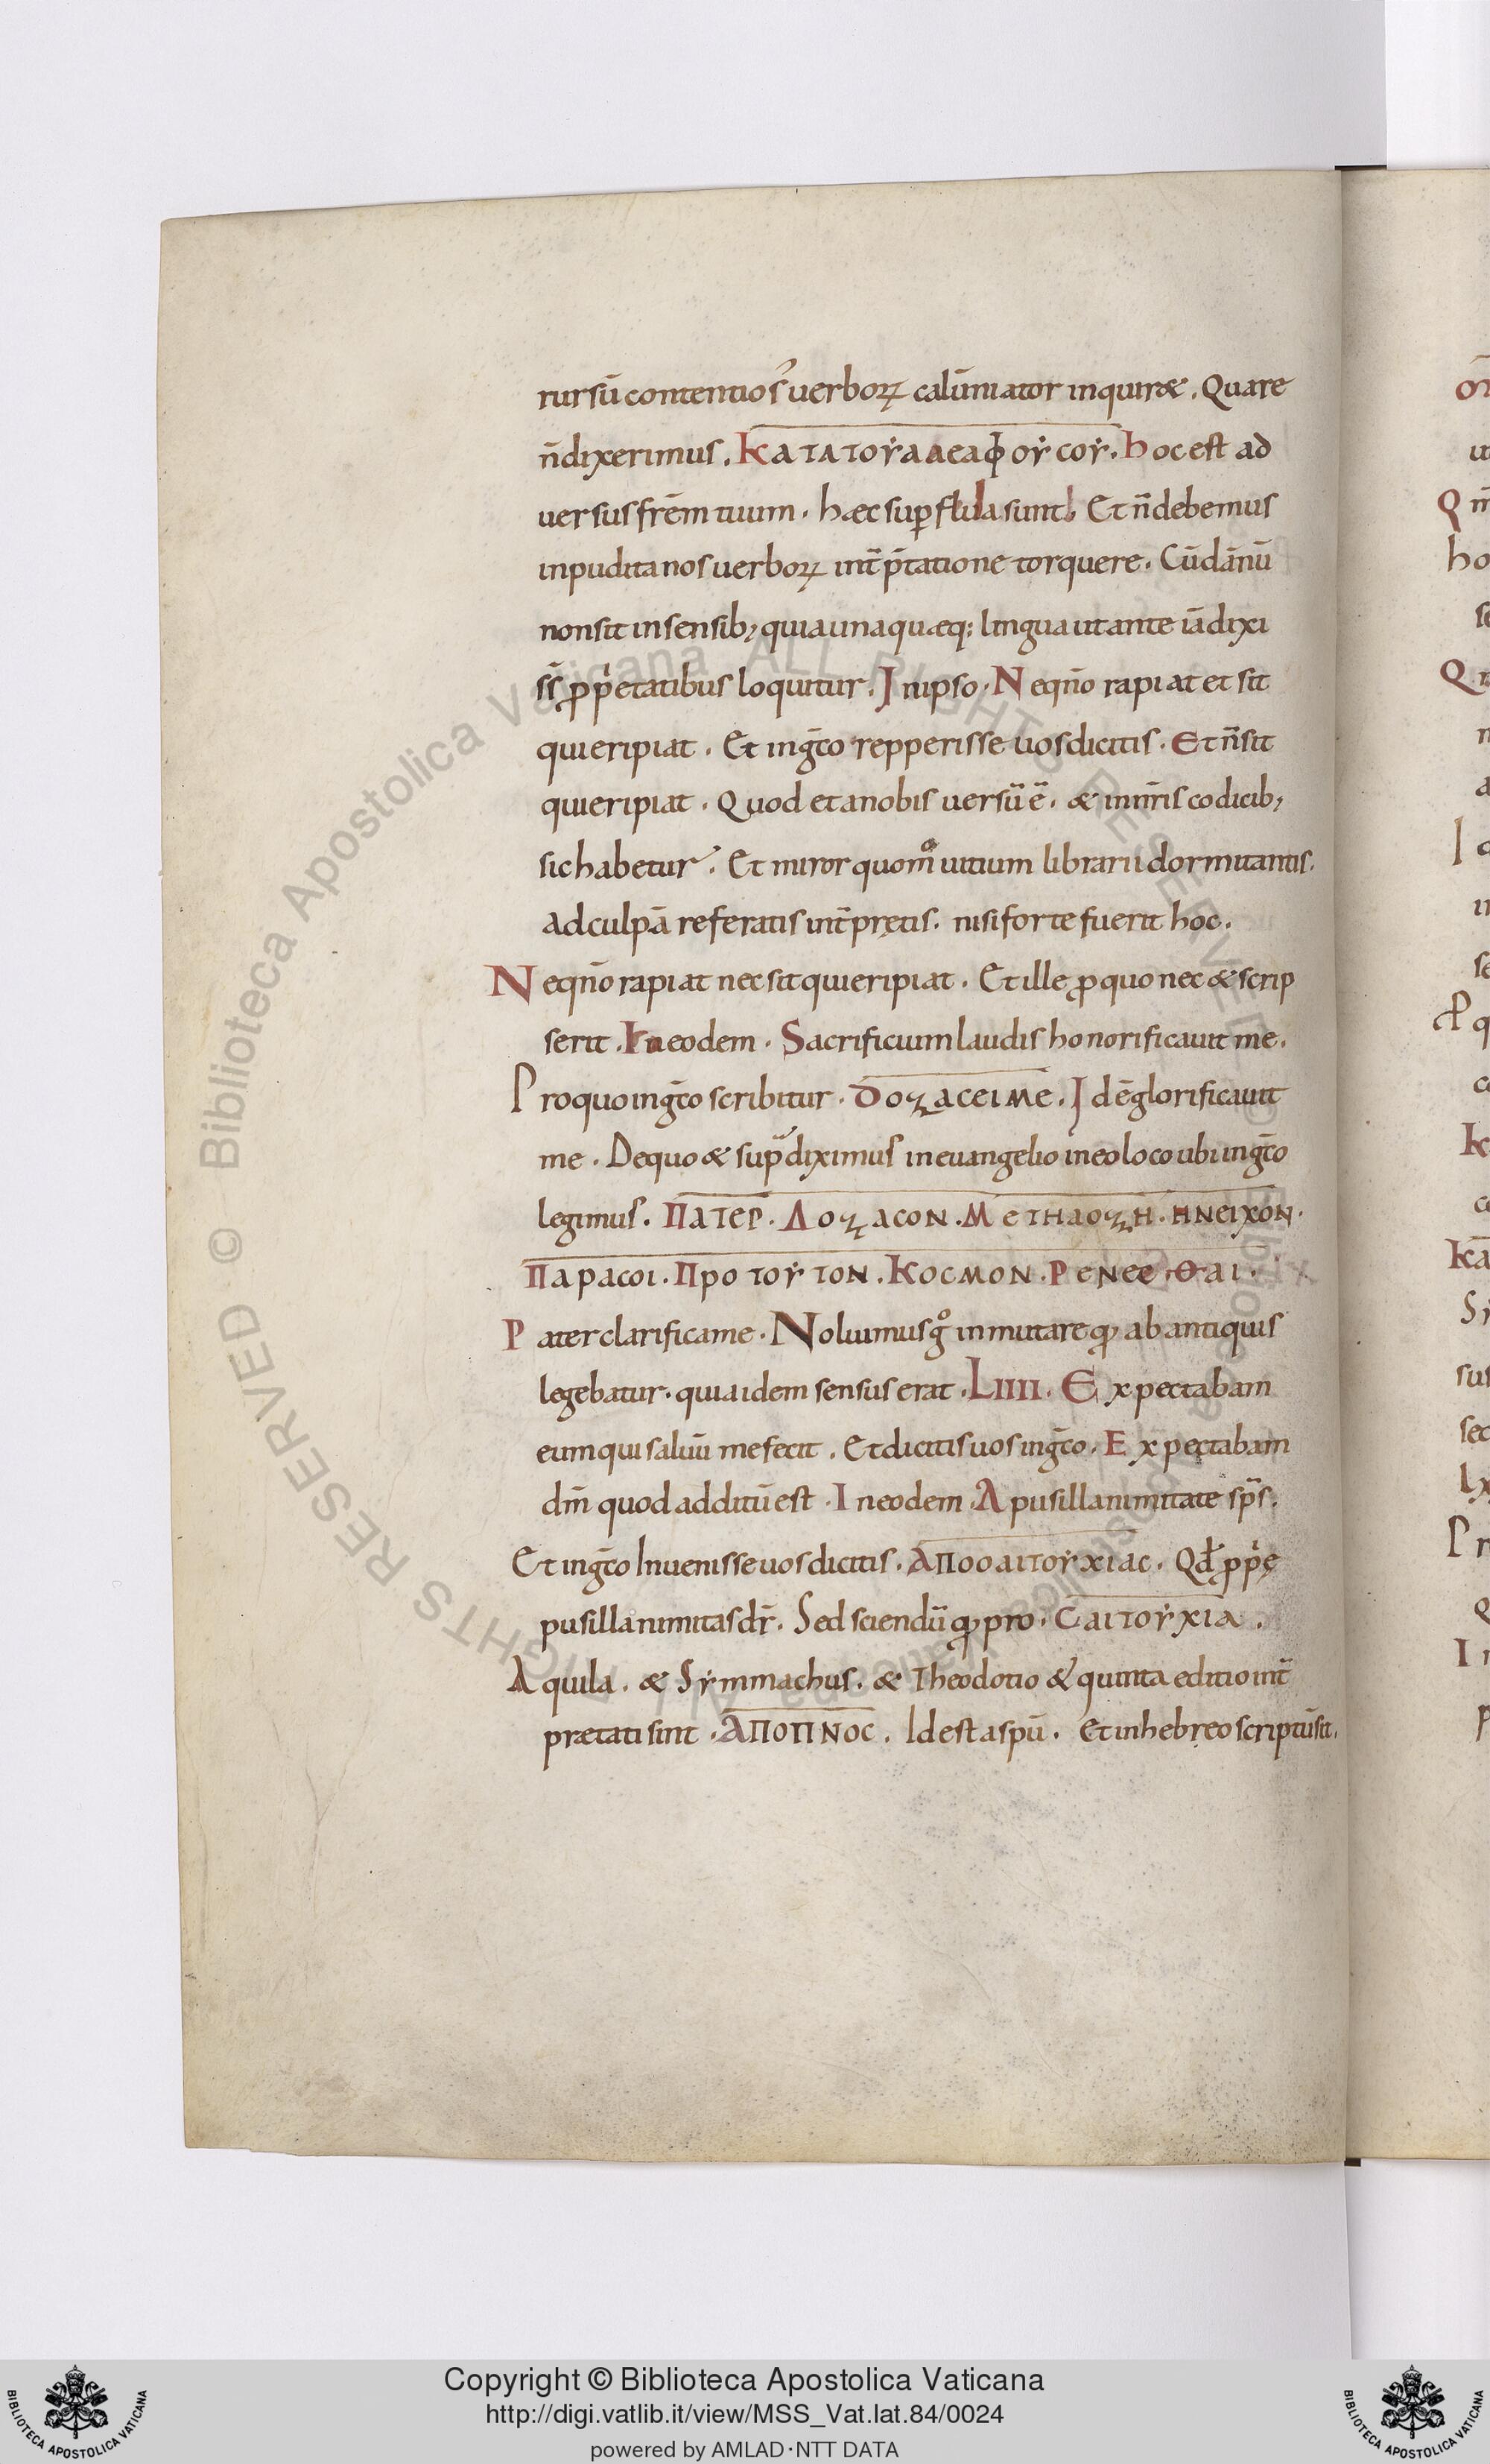 rursū contentios᾽ uerboꝝ calūniator inquiræ. Quare
n̄ dixerimus. Κατατουααεαφουσου. hoc est ad
uersus frēm tuum. hæc suꝑflula sunt. Et n̄ debemus
inputida nos uerboꝝ int̄p̄tatione torquere. Cū dānū
non sit in sensib; quia unaquæq; lingua ut ante iā dixi
ss̄ ꝓp̄etatibus loquitur. In ipso. Ne qn̄o rapiat et sit
qui eripiat. Et in gc̄o repperisse uos dicitis. Et n̄ sit
qui eripiat. Quod et a nobis uersū ē. & in nr̄is codicib;
sic habetur. Et miror quom̊ uitium librarii dormitantis.
ad culpā referatis int̄pretis. nisi forte fuerit hoc.
Ne qn̄o rapiat nec sit qui eripiat. Et ille ꝓ quo nec & scrip
serit. In eodem. Sacrificium laudis honorificauit me.
Pro quo in gc̄o scribitur. Δοξασειμε. Id ē glorificauit
me. De quo & supra diximus in euangelio in eo loco ubi in gc̄o
legimus. Πατερ. Δοξασον. Μετηδοξη. ηνειχον.
Παρασοι. Προτουτον. Κοσμον. Ρενεεθαι.
Pater clarifica me. Noluimus gͦ inmutare qđ ab antiquis
legebatur. quia idem sensus erat. LIIII. Expectabam
eum qui saluū me fecit. Et dicitis uos in gc̄o. Expectabam
dm̄ quod additū est. In eodem. A pusillanimitate sp̄s.
Et in gc̄o Inuenisse uos dicitis. Αποοαιτουχιας. Qđ ꝓpe
pusillanimitas dr̄. Sed sciendū qđ pro. Cαιτουχια.
Aquila. & Symmachus. & Theodotio & quinta editio int̄
prætati sint. Αποπνος. Id est a spū. Et in hebreo scriptū sit.
Copyright © Biblioteca Apostolica Vaticana
http://digi.vatlib.it/view/MSS_Vat.lat.84/0024
powered by AMLAD·NTT DATA